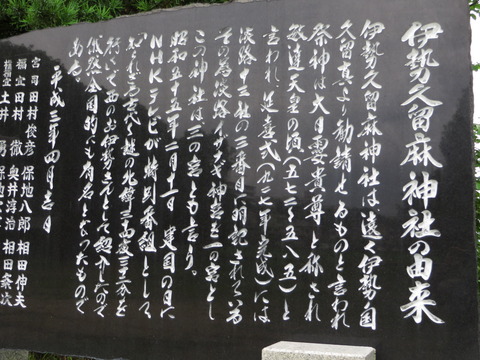 伊勢久留麻神社の由来
伊勢久留麻神社は遠く伊勢の国
久留真より勧請せるものと言われ
祭神は大日孁貴尊と称され
敏達天皇の頃(五七二~五八五)と
言われ延喜式(九二七年完成)には
淡路十三社の二番目に明記されている
その為淡路イザナギ神宮を一の宮とし
この神社は二の宮とも言う。
昭和五十五年二月十一日建国の日に
NHKテレビが特別番組として
「知られざる古代」の北緯三四度三二分を
行いて西のお伊勢さんとして紹介したので
俄然全国的にも有名となったもので
ある。
平成三年四月吉日
宮司 田村俊彦 保地八郎 相田伸夫
禰宜 田村徹 奥井淳治 相田粂次
権禰宜 土井